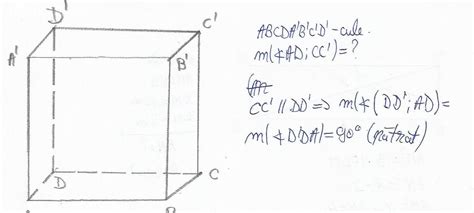 D' C'
A' B'
D C
ABCDA'B'C'D' - cub.
m(∢AD; CC') = ?
CC' // DD' ⇒ m(∢(DD'; AD) =
m(∢D'DA) = 90° (pătrat)